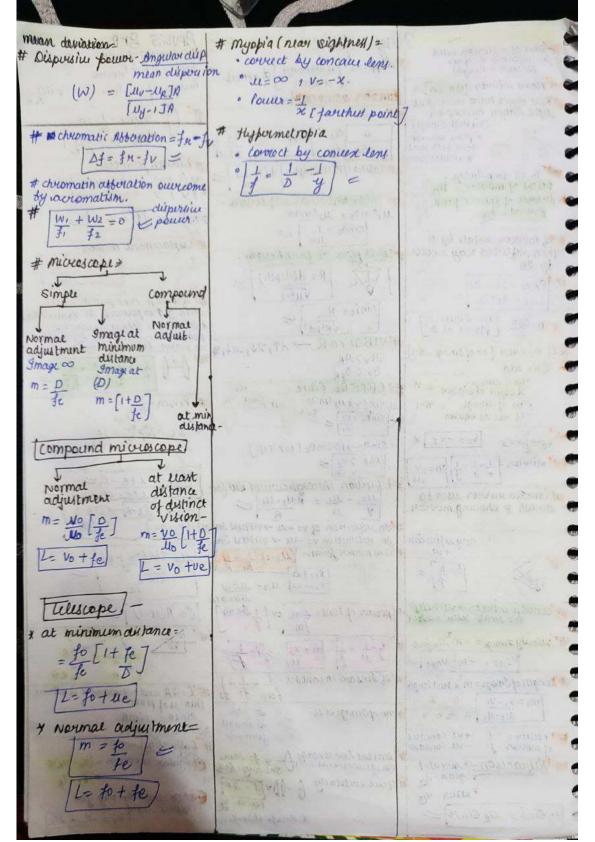 mean deviation -
# Dispersive power - Angular disp
mean dispersion
(W) = [μv-μR]A
[μy-1]A
# chromatic Abberation = fr - fv
Δf = fr - fv
# chromatin abberation overcome
by acromatism.
# W1/f1 + W2/f2 = 0 dispersive
power
# Microscope ⇒
Simple Compound
Normal
adjustment
Image ∞
m = D/fe
Image at
minimum
distance
Image at
(D)
m = [1+D/fe]
Normal
adjust.
at min
distance -
Compound microscope
Normal
adjustment
m = vo/uo [D/fe]
L = vo + fe
at least
distance
of distinct
vision -
m = vo/uo [1+D/fe]
L = vo + ve
Telescope -
* at minimum distance =
= fo/fe [1+ fe/D]
L = fo + ue
* Normal adjustment =
m = fo/fe
L = fo + fe
# Myopia (near sightness) =
• correct by concave lens.
• u = ∞, v = -x.
• Power = -1/x [farthest point]
# Hypermetropia
• correct by convex lens
• 1/f = 1/D - 1/y